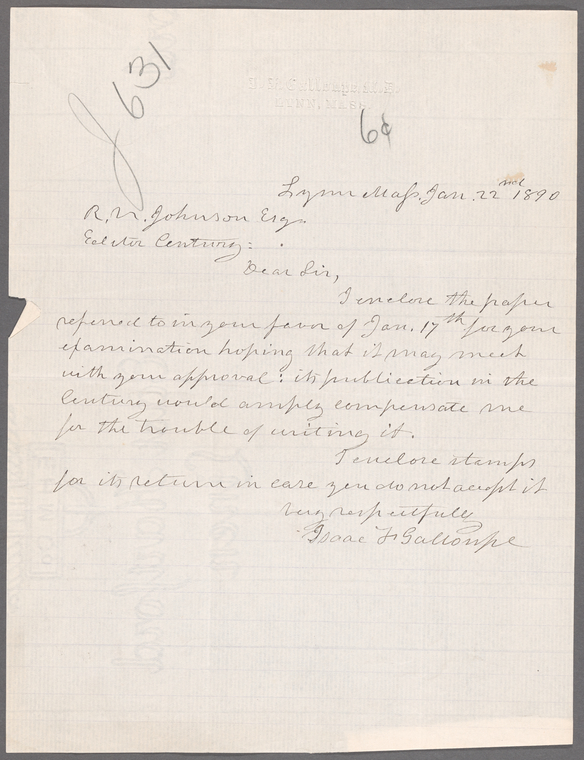 J 631
I. F. Galloupe, M.D.
LYNN, MASS.
6¢
Lynn Mass, Jan. 22nd 1890
R. U. Johnson Esq.
Editor Century:
Dear Sir,
I enclose the paper
referred to in your favor of Jan. 17th for your
examination hoping that it may meet
with your approval: its publication in the
Century would amply compensate me
for the trouble of writing it.
I enclose stamps
for its return in case you do not accept it
Very respectfully
Isaac F Galloupe